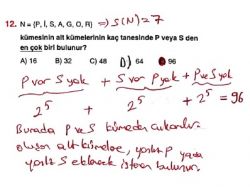 12. N = {P, İ, S, A, G, O, R} ⇒ S(N)=7
kümesinin alt kümelerinin kaç tanesinde P veya S den
en çok biri bulunur?
A) 16 B) 32 C) 48 D) 64 E) 96
P var S yok + S var P yok + P ve S yok
2^5 + 2^5 + 2^5 = 96
Burada P ve S kümeden çıkarılır.
oluşan alt kümelere, yalnız P yada
yalnız S eklenerek istenen bulunur.